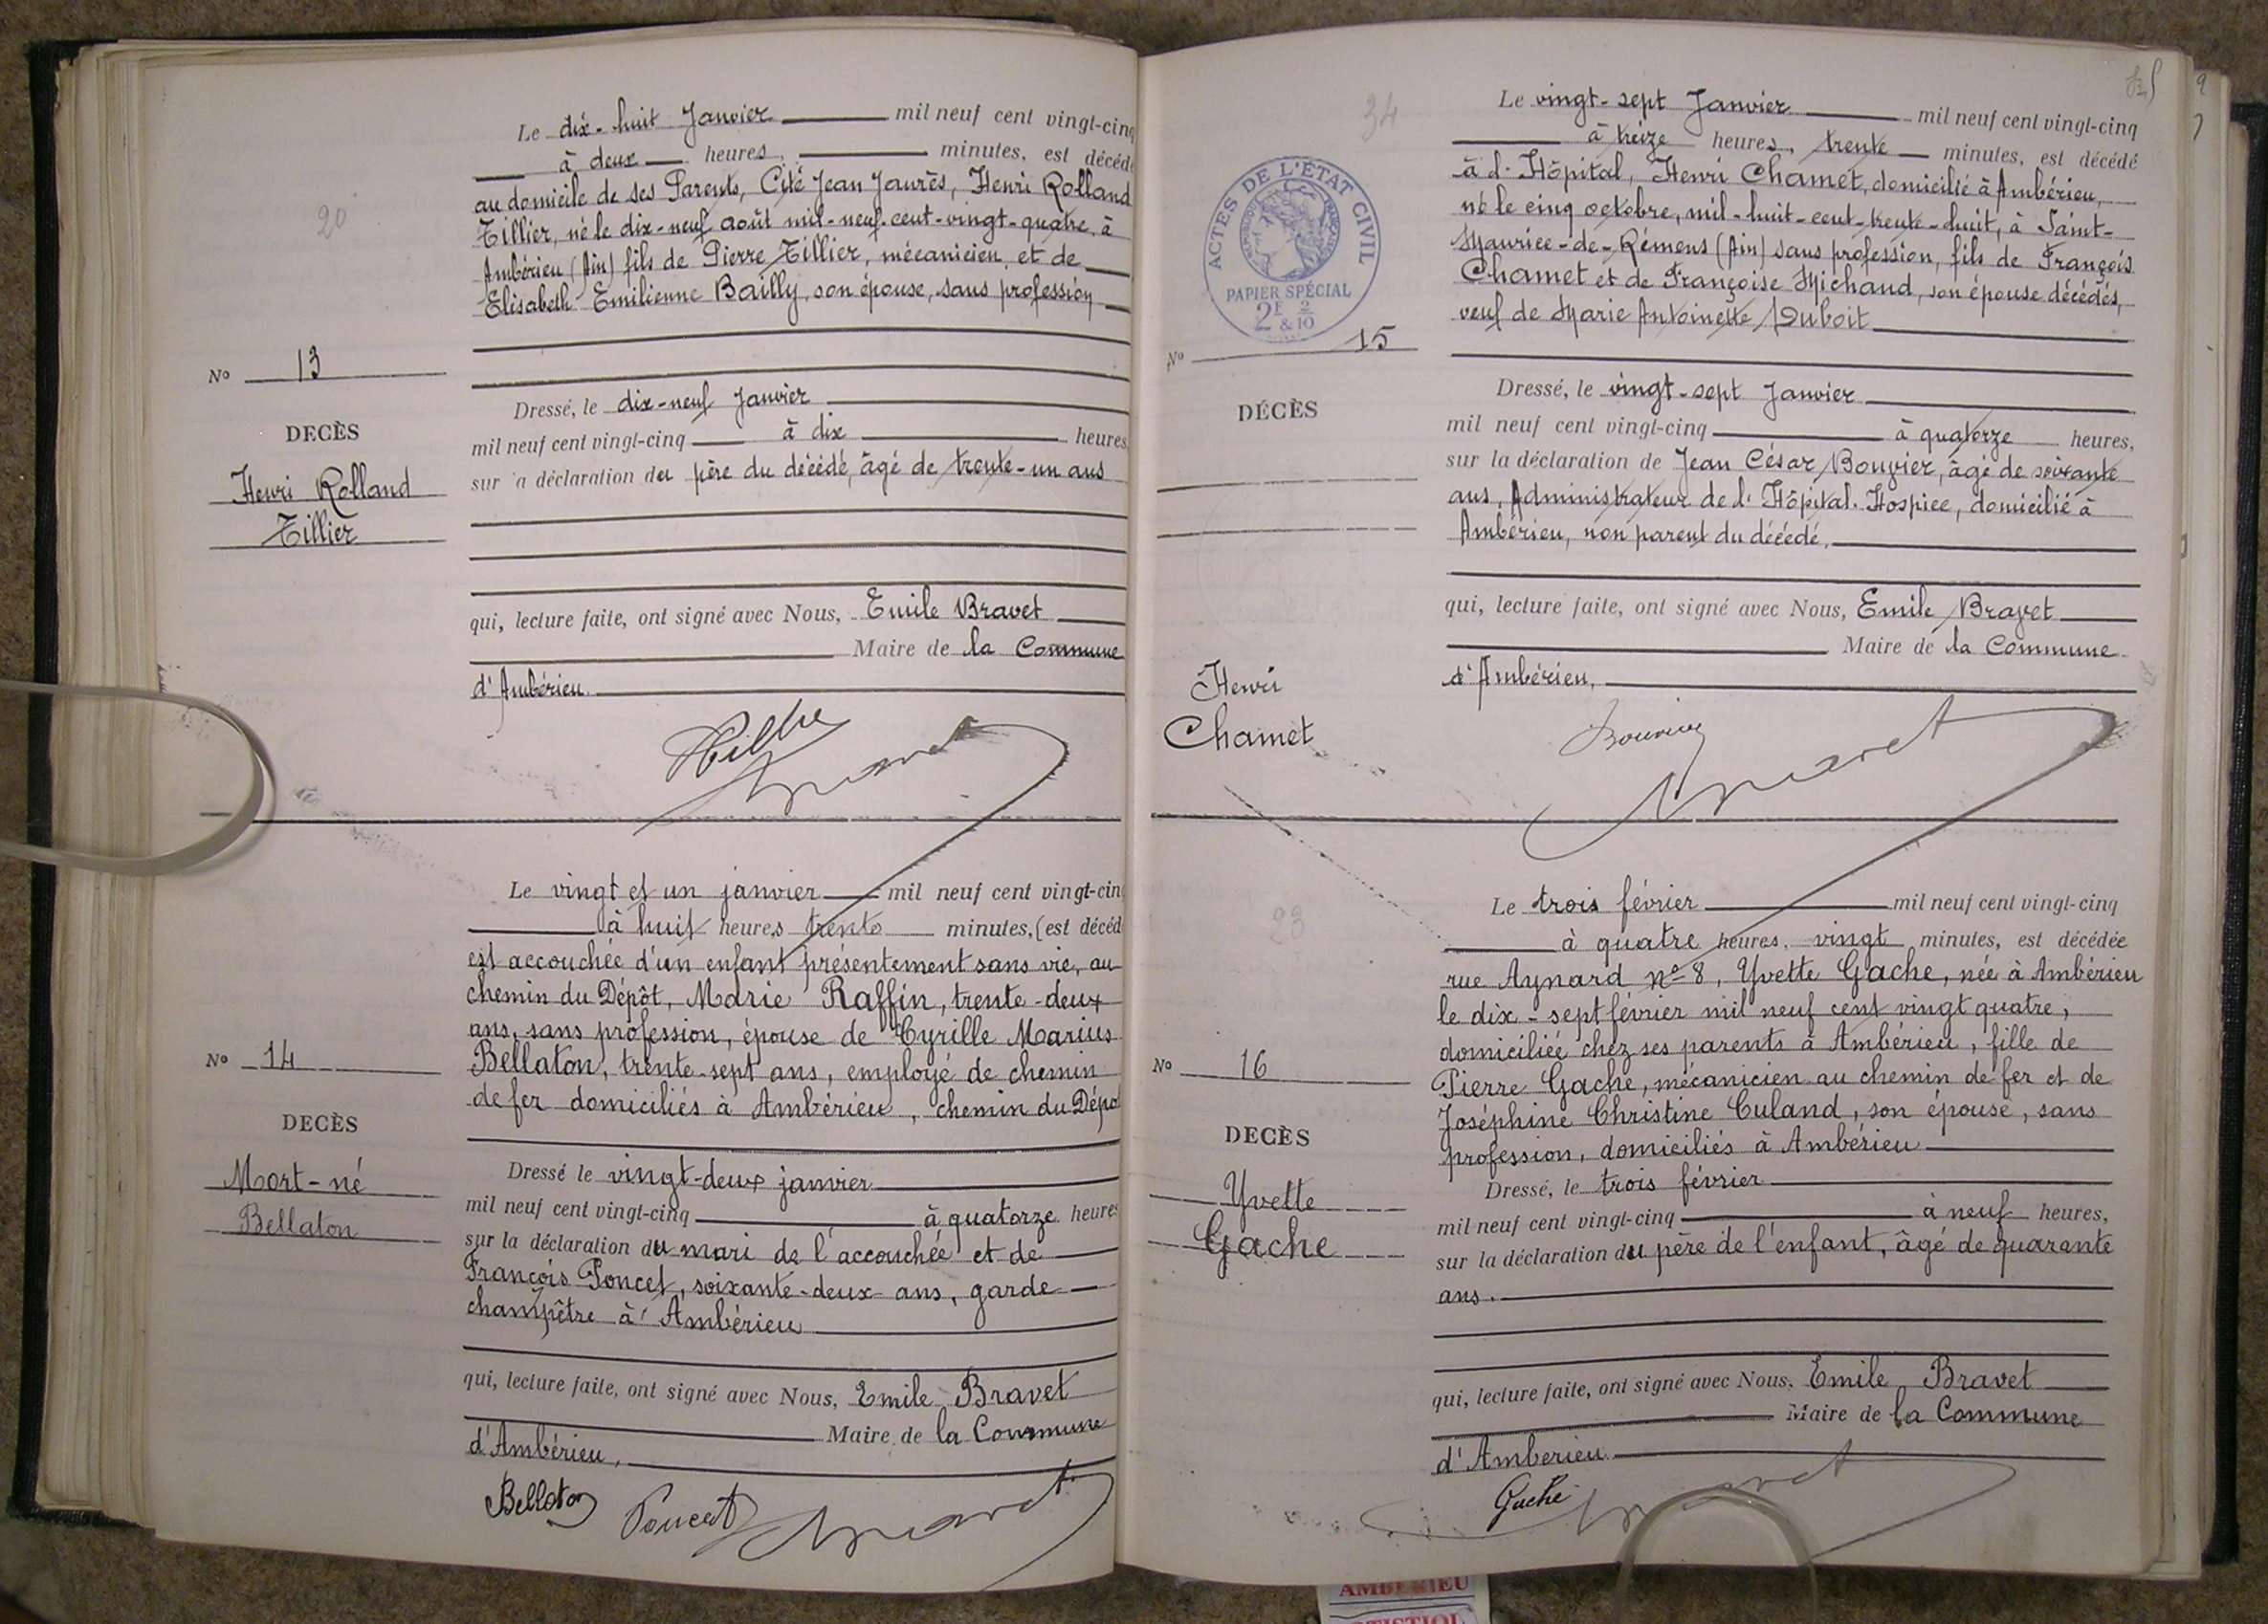 20
Le dix-huit Janvier mil neuf cent vingt-cinq
à deux heures, minutes, est décédé
au domicile de ses Parents, Cité Jean Jaurès, Henri Rolland
Tillier, né le dix-neuf août mil-neuf-cent-vingt-quatre, à
Ambérieu (Ain) fils de Pierre Tillier, mécanicien, et de
Elisabeth Emilienne Bailly, son épouse, sans profession
No 13
DECÈS
Henri Rolland
Tillier
Dressé, le dix-neuf Janvier
mil neuf cent vingt-cinq à dix heures
sur a déclaration du père du décédé, âgé de trente-un ans
qui, lecture faite, ont signé avec Nous, Emile Bravet
Maire de la Commune
d'Ambérieu.
Tillier
Bravet
Le vingt et un janvier mil neuf cent vingt-cin
à huit heures trente minutes, (est décéd
est accouchée d'un enfant présentement sans vie, au
chemin du Dépôt, Marie Raffin, trente-deux
ans, sans profession, épouse de Cyrille Marius
Bellaton, trente-sept ans, employé de chemin
de fer domiciliés à Ambérieu, chemin du Dépo
No 14
DECÈS
Mort-né
Bellaton
Dressé le vingt-deux janvier
mil neuf cent vingt-cinq à quatorze heures
sur la déclaration du mari de l'accouchée et de
François Poncet, soixante-deux ans, garde
champêtre à Ambérieu
qui, lecture faite, ont signé avec Nous, Emile Bravet
Maire de la Commune
d'Ambérieu,
Bellaton Poncet Bravet
34
Le vingt-sept Janvier mil neuf cent vingt-cinq
à treize heures, trente minutes, est décédé
à l'Hôpital, Henri Chamet, domicilié à Ambérieu,
né le cinq octobre, mil-huit-cent-trente-huit, à Saint-
Maurice-de-Rémens (Ain) sans profession, fils de François
Chamet et de Françoise Michaud, son épouse décédés,
veuf de Marie Antoinette Duboit
ACTES DE L'ÉTAT CIVIL
PAPIER SPÉCIAL
2F 2/10
&
No 15
DÉCÈS
Henri
Chamet
Dressé, le vingt-sept Janvier
mil neuf cent vingt-cinq à quatorze heures,
sur la déclaration de Jean César Bouvier, âgé de soixante
ans, Administrateur de l'Hôpital-Hospice, domicilié à
Ambérieu, non parent du décédé.
qui, lecture faite, ont signé avec Nous, Emile Bravet
Maire de la Commune
d'Ambérieu,
Bouvier
Bravet
23
Le trois février mil neuf cent vingt-cinq
à quatre heures, vingt minutes, est décédée
rue Aynard no 8, Yvette Gache, née à Ambérieu
le dix-sept février mil neuf cent vingt quatre,
domiciliée chez ses parents à Ambérieu, fille de
Pierre Gache, mécanicien au chemin de fer et de
Joséphine Christine Culand, son épouse, sans
profession, domiciliés à Ambérieu
No 16
DECÈS
Yvette
Gache
Dressé, le trois février
mil neuf cent vingt-cinq à neuf heures,
sur la déclaration du père de l'enfant, âgé de quarante
ans.
qui, lecture faite, ont signé avec Nous, Emile Bravet
Maire de la Commune
d'Amberieu
Gache Bravet
AMBERIEU